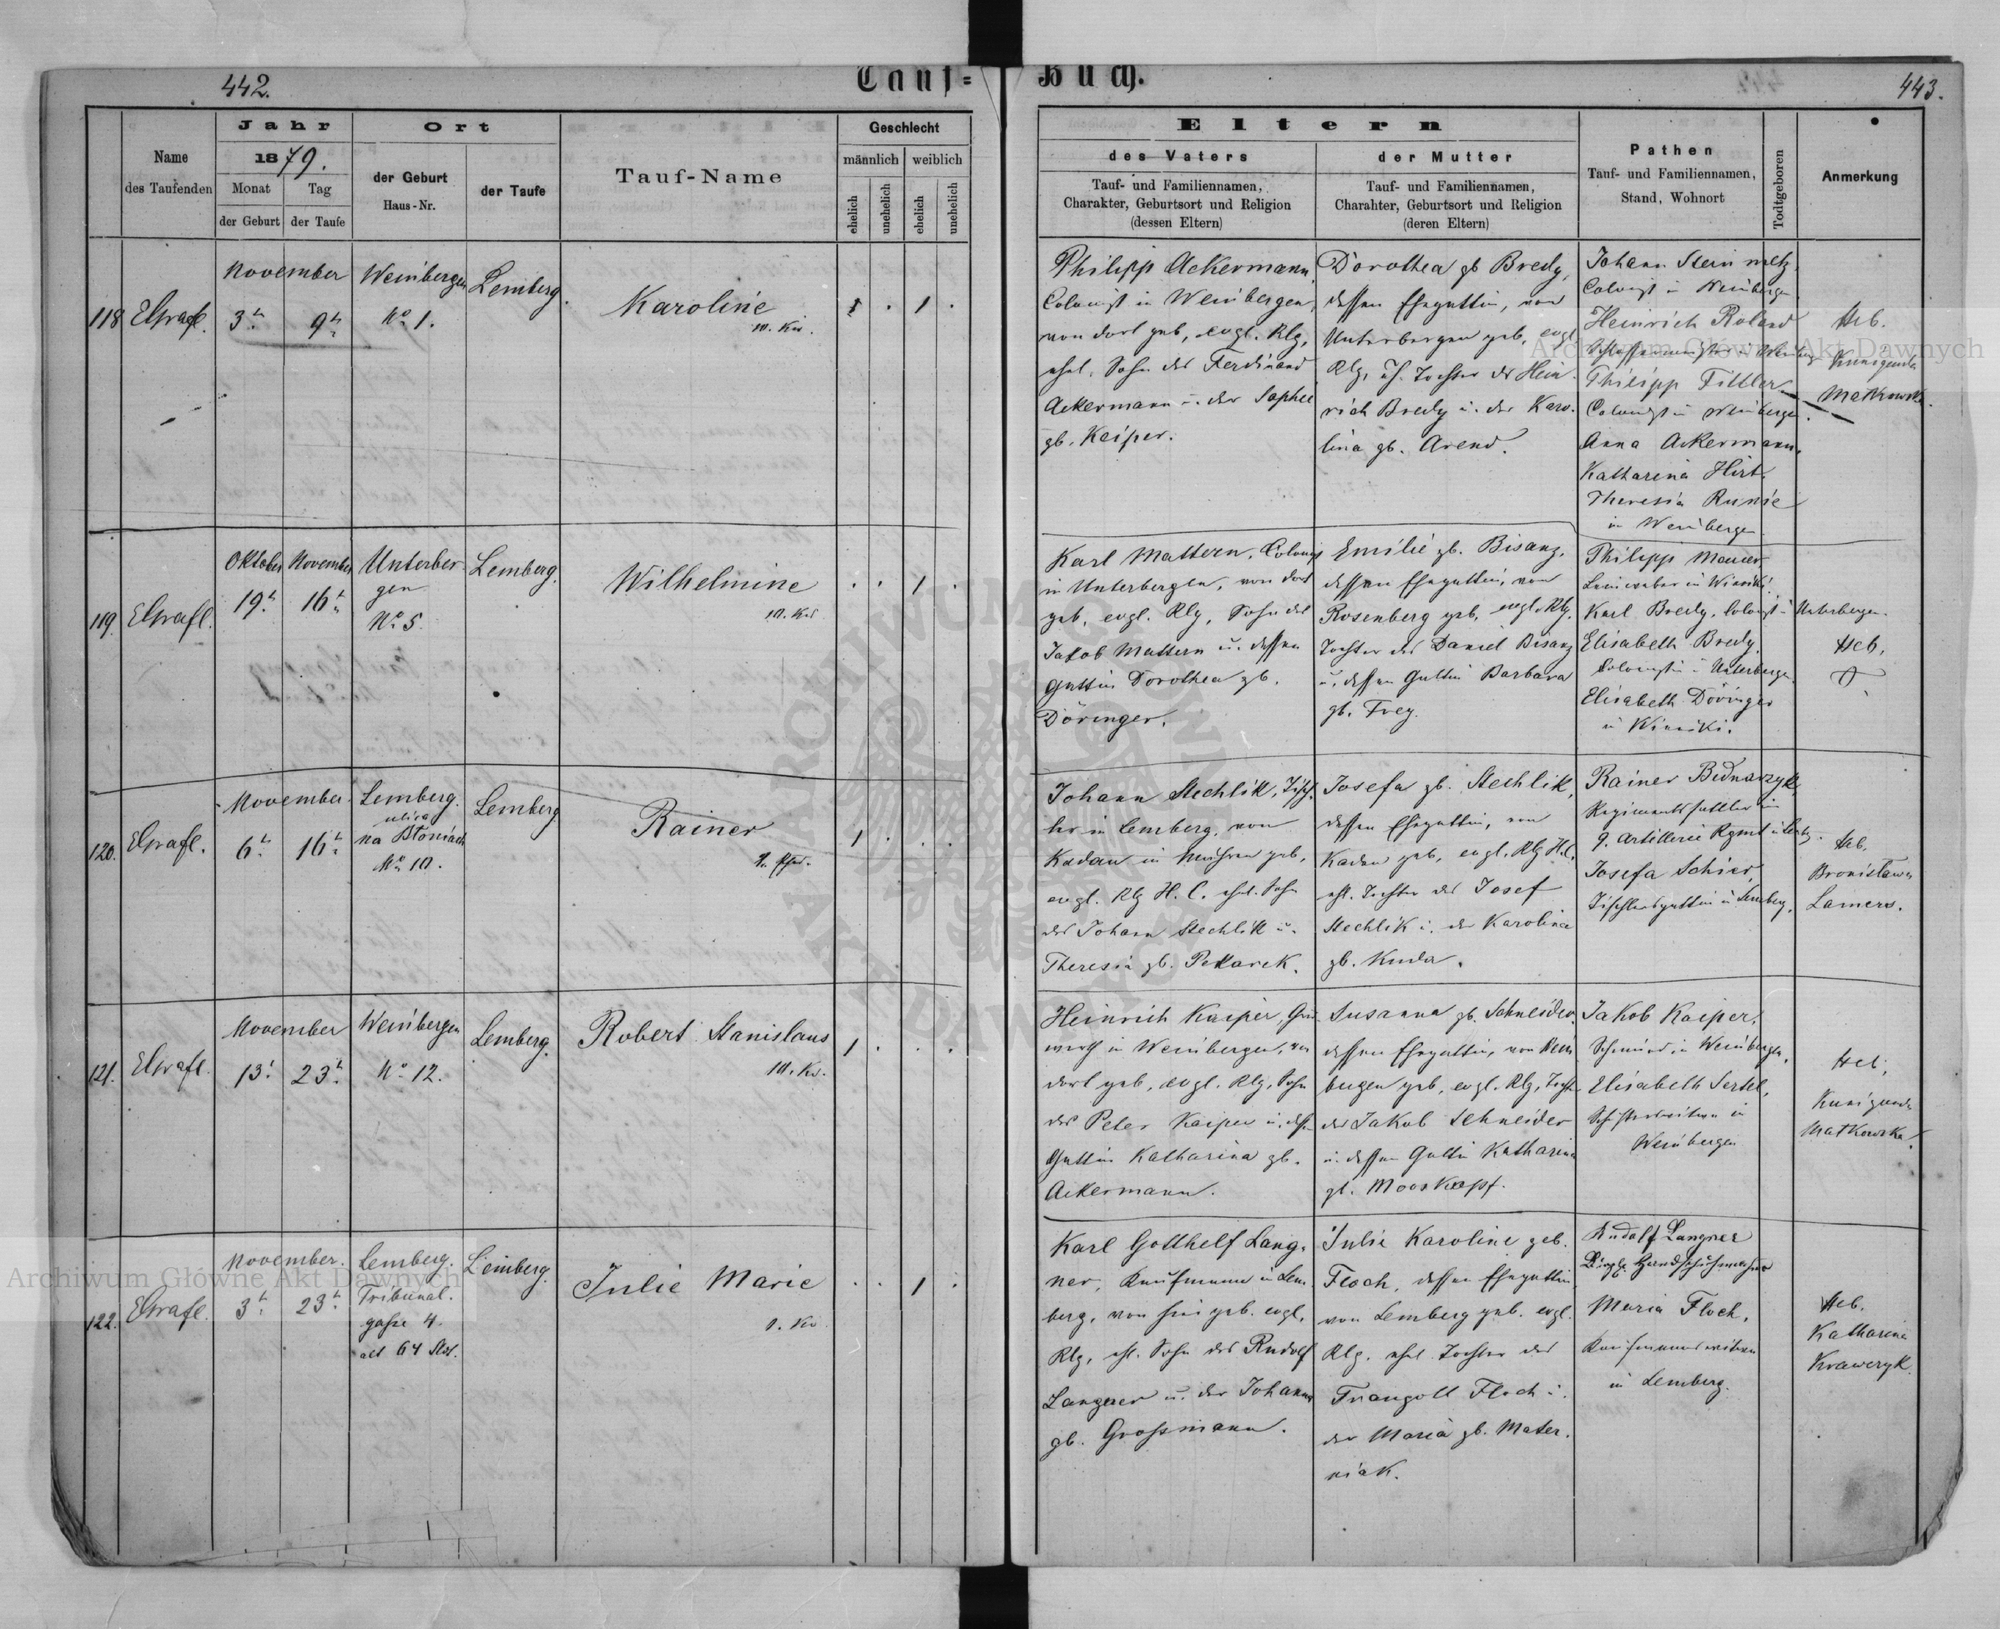 442.
Tauf=
Name
des Taufenden
Jahr
1879.
Monat
Tag
der Geburt
der Taufe
Ort
der Geburt
Haus-Nr.
der Taufe
Tauf-Name
Geschlecht
männlich
weiblich
ehelich
unehelich
ehelich
unehelich
118
November
3t.
9t.
Weinbergen
No 1.
Lemberg.
Karoline
1
119.
Oktober
November
19t.
16t.
Unterber
gen
No 5
Lemberg.
Wilhelmine
1
120.
November
6t.
16t.
Lemberg.
ulica
na Błoniach
No 10.
Lemberg
Rainer
1
121.
November
13t
23t.
Weinbergen
No 12.
Lemberg.
Robert Stanislaus
1
122.
November.
3t.
23t.
Lemberg.
Tribunal.
gasse 4.
Lemberg.
Julie Marie
1
Buch.
443.
Eltern
des Vaters
Tauf- und Familiennamen,
Charakter, Geburtsort und Religion
(dessen Eltern)
der Mutter
Tauf- und Familiennamen,
Charahter, Geburtsort und Religion
(deren Eltern)
Pathen
Tauf- und Familiennamen,
Stand, Wohnort
Todtgeboren
Anmerkung
Philipp Ackermann
Colonist in Weinbergen,
von dort geb, evgl. Rlg,
ehel. Sohn des Ferdinand
Ackermann u. der Sophie
gb. Keiper.
Dorothea gb Bredy,
dessen Ehegattin, von
Unterbergen geb, evgl
Rlg, eh. Tochter des Hein
rich Bredy u. der Karo.
lina gb. Arend.
Johann Steinmetz
Colonist in Weinbergen
Heinrich Roland
Philipp Fittler
Colonist in Weinbergen.
Anna Ackermann,
Katharina Hirt.
Theresia
in Weinbergen
Heb.
Kunigunda
Matkowska.
Karl Mattern, Colonist
in Unterbergen, von dort
geb, evgl. Rlg, Sohn des
Jakob Mattern u. dessen
Gattin Dorothea gb.
Döringer.
Emilie gb. Bisanz,
dessen Ehegattin, von
Rosenberg geb, evgl. Rlg,
Tochter des Daniel Bisanz
u. dessen Gattin Barbara
gb. Frey.
Philipp Maurer
Leinweber in Winniki
Karl Bredy, Colonist in Unterbergen.
Elisabeth Bredy.
Colonistin in Unterbergen.
Elisabeth Döringer
in Winniki.
Heb.
Johann Stechlik, Tisch.
ler in Lemberg, von
Kadau in Mähren geb,
evgl. Rlg H. C. ehel. Sohn
des Johann Stechlik u.
Theresia gb. Pekarek.
Josefa gb. Stechlik,
dessen Ehegattin, von
Kadau geb, evgl. Rlg H.C.
ehl. Tochter des Josef
Stechlik u. der Karolina
gb. Kuda.
Rainer Bednarzyk,
Regimentssattler im
9. Artillerie Rgmt in Lembg.
Josefa Schier,
Tischlersgattin in Lemberg.
Heb.
Bronisława
Lamers.
Heinrich Kaiper, Grund
wirth in Weinbergen, von
dort geb, evgl. Rlg, Sohn
des Peter Kaiper u. dessen
Gattin Katharina gb.
Ackermann.
Susanna gb. Schneider,
dessen Ehegattin, von Wein
bergen geb, evgl. Rlg, Tochter
des Jakob Schneider
u. dessen Gattin Katharina
gb. Mooskopf.
Jakob Kaiper,
Schmied in Weinbergen,
Elisabeth Sertel,
in
Weinbergen
Heb.
Kunigunda
Matkowska.
Karl Gotthelf Lang.
ner, Kaufmann in Lem
berg, von hier geb. evgl.
Rlg, eh. Sohn des Rudolf
Langner u. der Johanna
gb. Grossmann.
Julie Karoline geb.
Floch, dessen Ehegattin
von Lemberg geb. evgl.
Rlg. ehel Tochter des
Traugott Floch u.
der Maria gb. Mater.
niak.
Rudolf Langner
Handschuhmacher
Maria Floch,
Kaufmannswitwe
in Lemberg.
Heb.
Katharina
Krawczyk.
Archiwum Główne Akt Dawnych
Archiwum Główne Akt Dawnych